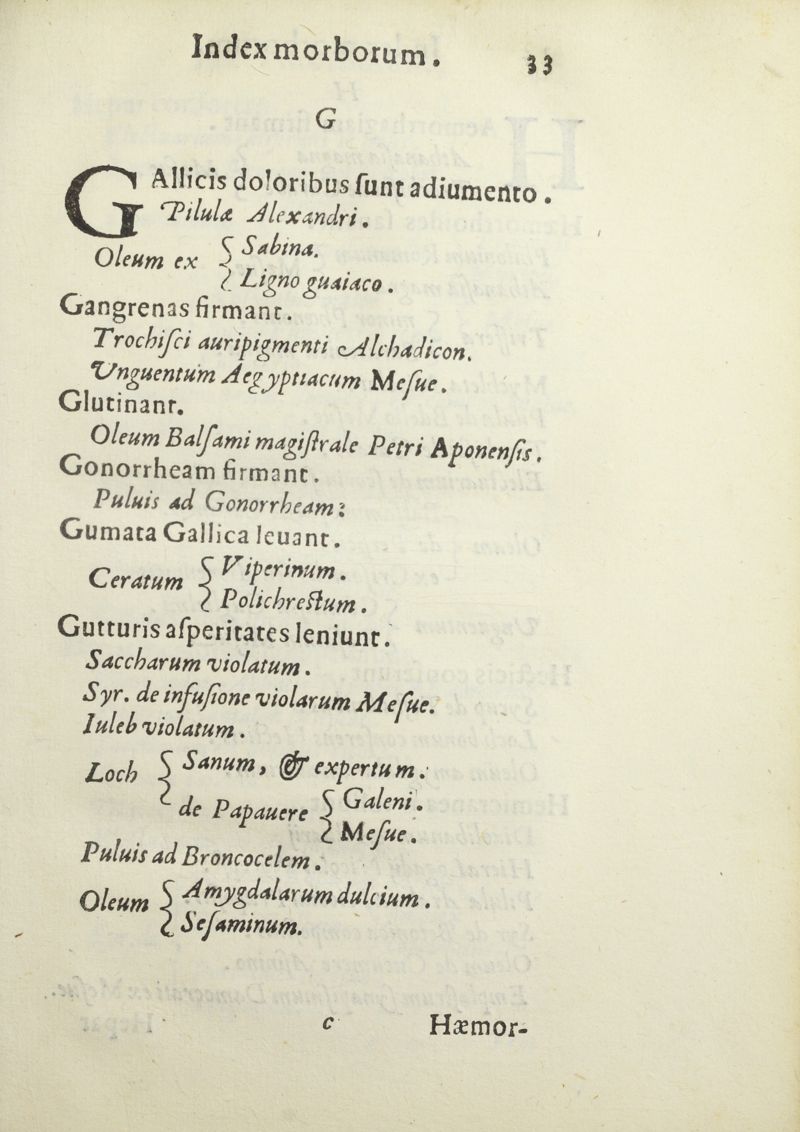 Index morborum. 33
G
GAllicis doloribus ſunt adiumento.
Pilulæ Alexandri.
Oleum ex { Sabina.
{ Ligno guaiaco.
Gangrenas firmant.
Trochiſci auripigmenti Alchadicon.
Vnguentum Aegyptiacum Meſue.
Glutinant.
Oleum Balſami magiſtrale Petri Aponenſis.
Gonorrheam firmant.
Puluis ad Gonorrheam:
Gumata Gallica leuant.
Ceratum { Viperinum.
{ Polichreſtum.
Gutturis aſperitates leniunt.
Saccharum violatum.
Syr. de infuſione violarum Meſue.
Iuleb violatum.
Loch { Sanum, & expertum.
{ de Papauere { Galeni.
{ Meſue.
Puluis ad Broncocelem.
Oleum { Amygdalarum dulcium.
{ Seſaminum.
c Hæmor-